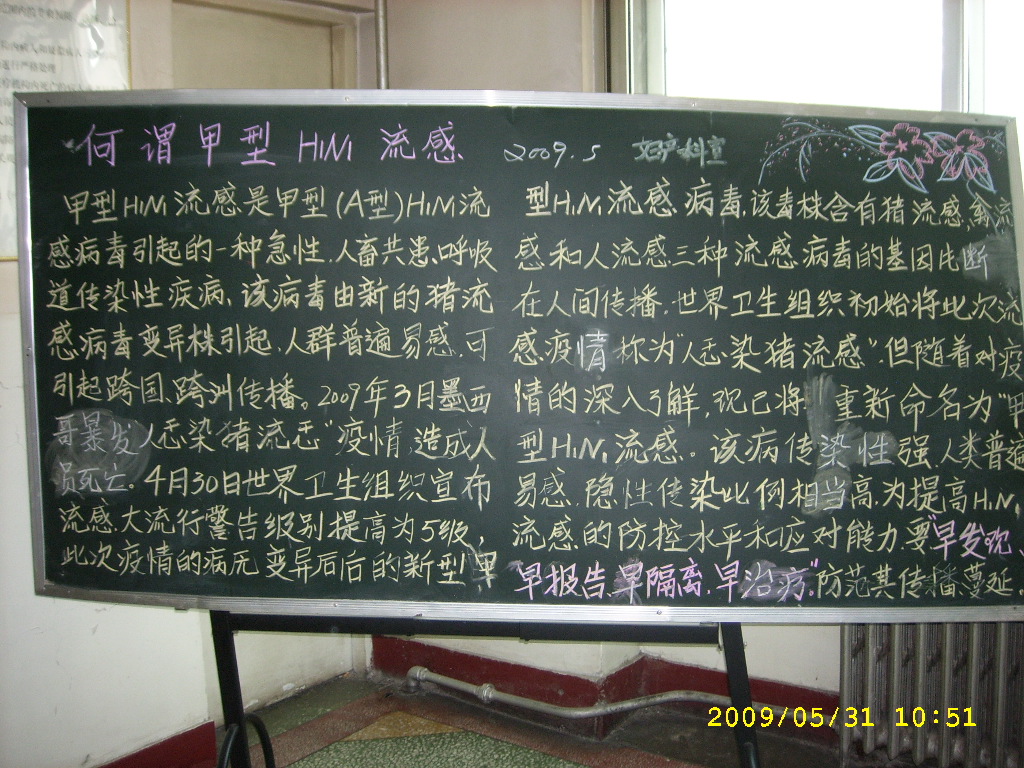 何谓甲型 H1N1 流感 2009.5 妇产科宣
甲型H1N1流感是甲型(A型)H1N1流
感病毒引起的一种急性、人畜共患、呼吸
道传染性疾病、该病毒由新的猪流
感病毒变异株引起、人群普遍易感、可
引起跨国、跨洲传播。2009年3月墨西
哥暴发人感染猪流感"疫情、造成人
员死亡。4月30日世界卫生组织宣布
流感、大流行警告级别提高为5级,
此次疫情的病无变异后后的新型甲
型H1N1流感、病毒、该毒株含有猪流感、禽流
感和人流感三种流感、病毒的基因比断
在人间传播、世界卫生组织初始将此次流
感、疫情称为"人感染猪流感"、但随着对疫
情的深入了解,现已将重新命名为"甲
型H1N1流感。该病传染性强、人类普遍
易感、隐性传染比例相当高、为提高H1N1
流感的防控水平和应对能力、要"早发现、
早报告、早隔离、早治疗"防范其传播、蔓延。
2009/05/31 10:51